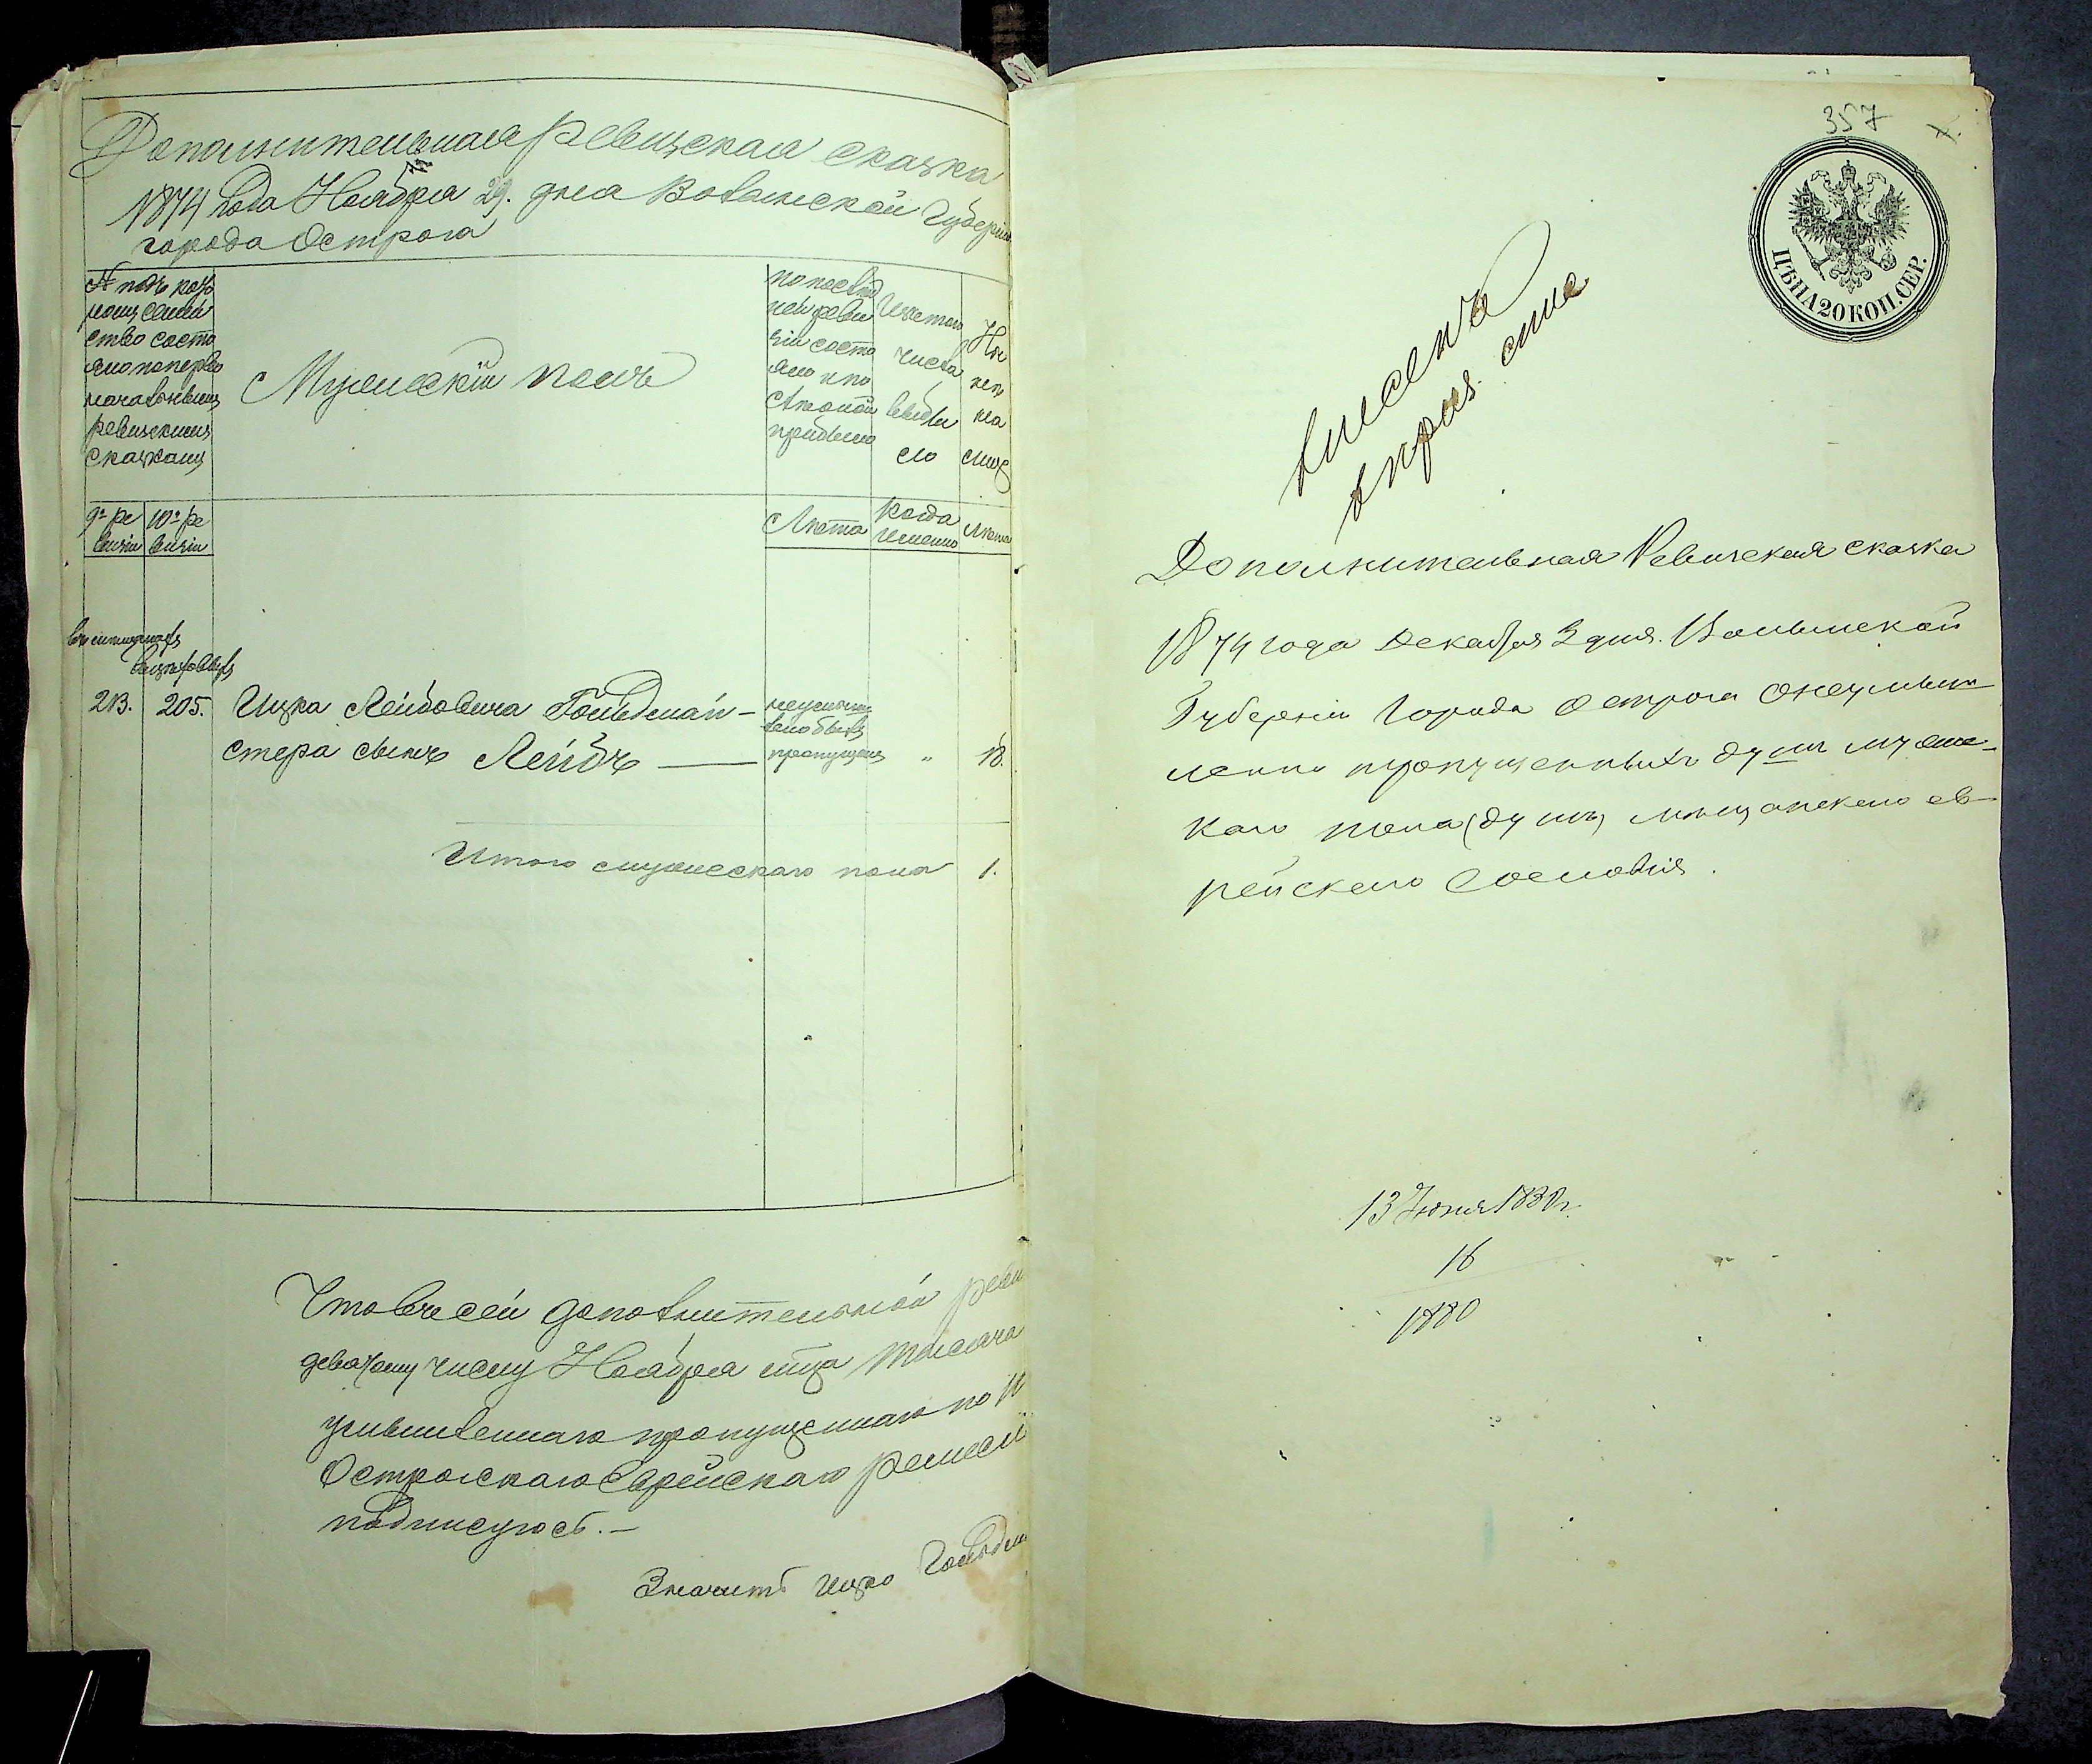 Дополнительная ревизская сказка
1874 года Ноября 29. дня Волынской Губерніи
города Острога
№ подъ кото
рымъ семей
ство состо
яло по перво
начальнымъ
ревизскимъ
сказкамъ
Мужескій полъ
по послѣд
ней реви
зіи состо
яло и по
слѣ оной
прибыло
Изъ того
числа
выбы
ло
Ны
нѣ
на
лицо
9я ре
визіи
10я ре
визіи
Лѣта
когда
именно
Лѣта
213.
205.
Ицка Лейбовича Гольдмай-
стера сынъ Лейбъ
неумыш
ленно былъ
пропущенъ
"
18.
Итого мужескаго пола 1.
Что въ сей дополнительной реви
девятому числу Ноября мца тысяча
умышленнаго пропущеннаго по
Острожскаго Еврейскаго ремесл
подписуюсь.-
Значитъ Ицко Гольдм
357
ЦѢНА 20 КОП. СЕР.
Дополнительная Ревизская сказка
1874 года Декабря 3 дня. Волынской
Губерніи Города Острога о неумыш
ленно пропущенныхъ душъ муже-
каго пола (душъ) мѣщанскаго ев-
рейскаго сословія.
13 Іюня 1880 г.
16
1880